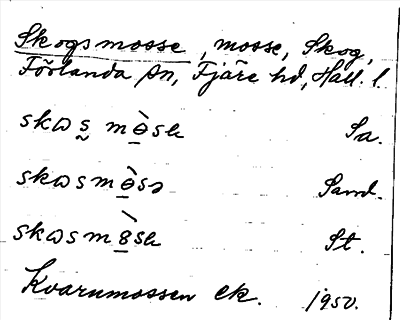 Skogsmosse, mosse, Skog,
Förlanda sn, Fjäre hd, Hall. l.
skɷs̰ mɵ̀sɐ Sa.
skɷsmɵ̀sə Sand.
skɷsm8̀sɐ St.
Kvarnmossen ek. 1950.